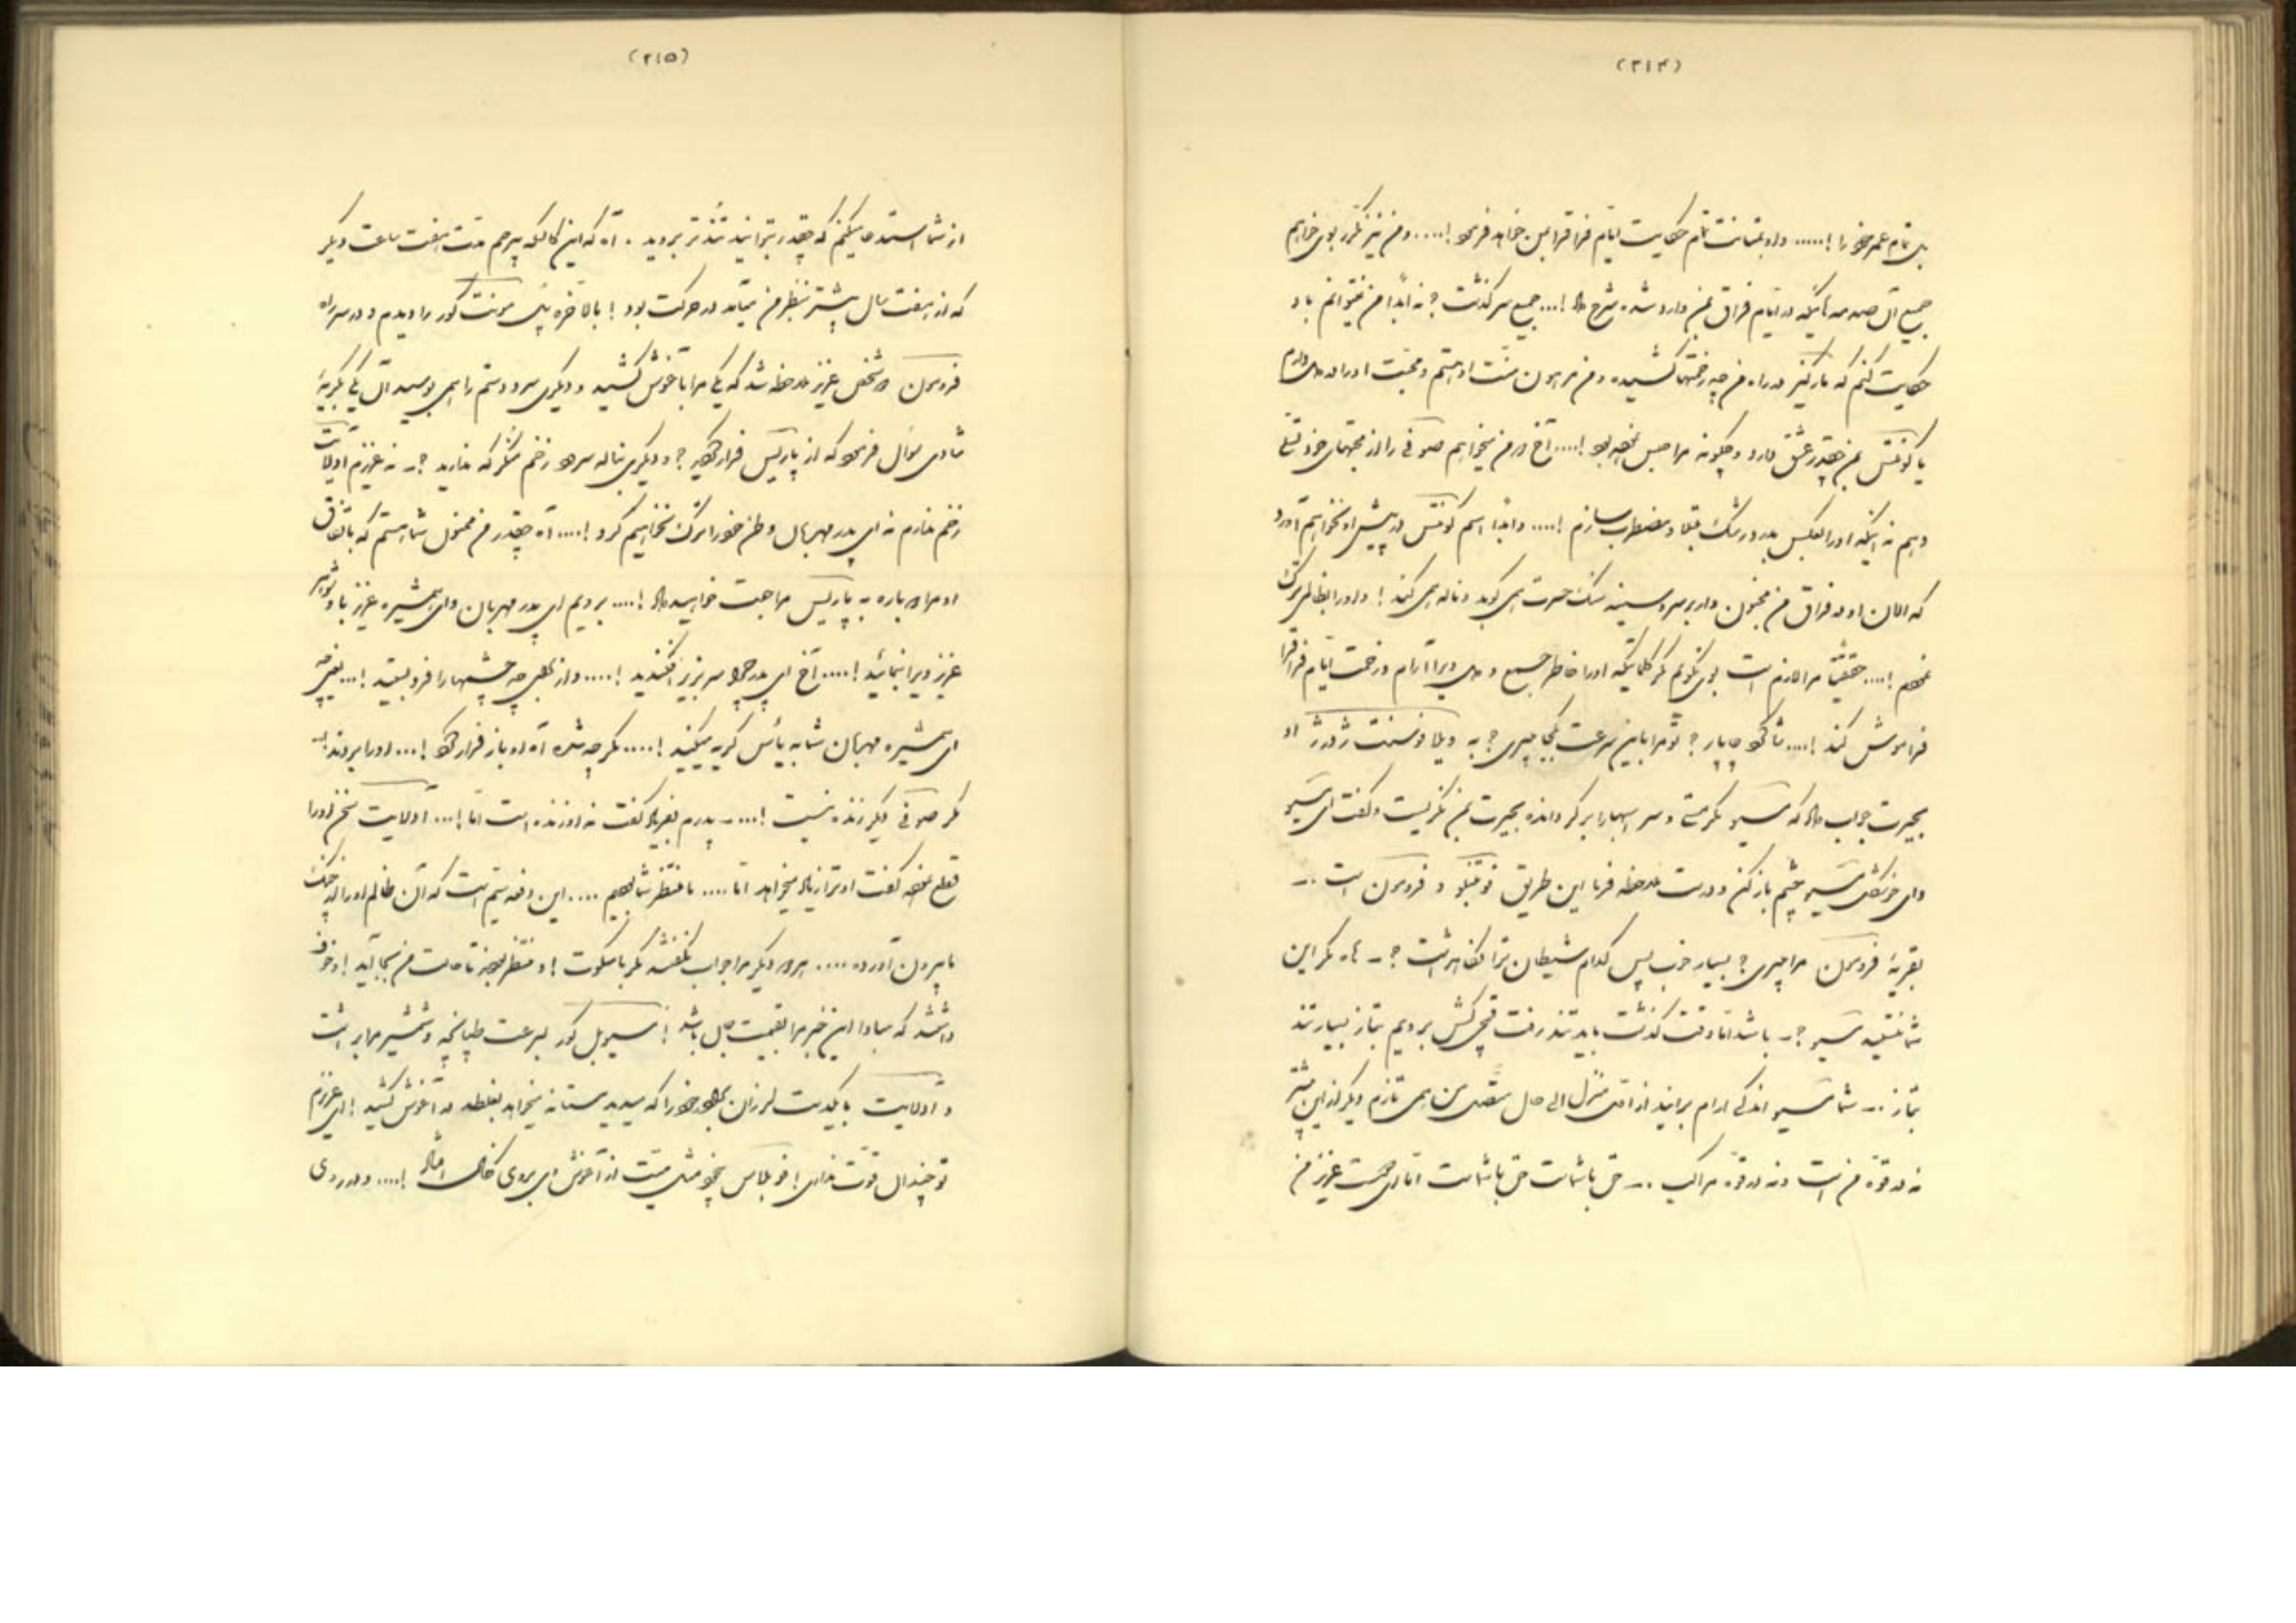 (۲۱۴)
تمام عمر خود را !..... و او بمتانت تمام حکایت ایام فراق را بمن خواهد فرمود !.... و من نیز مکرر بوی خواهم
جمیع آن صدمه هائیکه در ایام فراق بمن وارد شده شرح داد !... جمیع سرگذشت ؟ نه ابداً من نمیتوانم باو
حکایت کنم که مارگریت در راه من چه زحمتها کشیده و من مرهون منت او هستم و محبت او را در دل دارم
یا کونتس بمن چقدر عشق دارد و چگونه مرا حبس نموده بود !.... آخ من میخواهم صوفی را از محبتهای خود تسلی
دهم نه اینکه او را بعکس بدرد رشک مبتلا و مضطرب سازم !.... و ابداً اسم کونتس در پیش او نخواهم آورد
که الان او در فراق من مجنون وار بر سر و سینه سنگ حسرت همی کوبد و ناله همی کند ! و او را
.... حقیقتاً مرا لازم است بوی نگویم مگر کلماتیکه او را خاطر جمع و دل ویرا آرام و زحمت ایام فراق را
فراموش کند !.... چاپار ؟ تو مرا باین سرعت بکجا میبری ؟ به ویلا نوسنت ژورژ او
بحیرت جواب داد که مسیو مگر مستی و سر اسبها را برگردانده بحیرت بمن نگریست و گفت ای مسیو
وای مسیو چشم باز کن و درست ملاحظه فرما این طریق فونتنبلو و فرومون است ..
بقریهٔ فرومون مرا میبری ؟ بسیار خوب پس کدام شیطان ترا ؟ .. مگر این
شما نیستید مسیو ؟ .. باشد اما وقت گذشت باید تند رفت قمچی کش برویم بتاز بسیار تند
بتاز ... شما مسیو اندکی آرام براند از اول منزل الی حال متصل من همی تازم دیگر از این بیشتر
نه در قوهٔ من است و نه در قوهٔ مراکب ... حق با شماست حق با شماست اما ای دوست عزیز من
(۲۱۵)
از شما استدعا میکنم که چقدر بتوانید تندتر بروید . آه که این کالسکه بیرحم مدت هفت ساعت دیگر
که از هفت سال بیشتر بنظر من میآید در حرکت بود ! بالاخره پل مونت کور را دیدم و در سر راه
فرومون دو شخص عزیز ملاحظه شد که یکی مرا بآغوش کشید و دیگری سر و دستم را همی بوسید آن یکی بگریهٔ
شادی سؤال فرمود که از پاریس فرار کردید ؟ و دیگری بناله سر زخم منکر که ندارید ؟ .. نه عزیزم آدلایت
زخم ندارم نه ای پدر مهربان وطن خود را ترک نخواهیم کرد !.... آه چقدر من ممنون شما هستم که باتفاق
او مرا دوباره به پاریس مراجعت خواهید داد !.... برویم ای پدر مهربان و ای همشیره عزیز با شوهر
عزیز ویرا بنمائید !.... آخ ای پدر چرا سر بزیر افکندید !.... و از برای چه چشمها را فرو بستید !... یعنی چه
ای همشیره مهربان شما به یأس گریه میکنید !.... مگر چه شده آه او باز فرار کرد !... او را بردند
مگر صوفی دیگر زنده نیست !... .. پدرم بفریاد گفت نه او زنده است اما !... آدلایت سخن او را
قطع نموده گفت او ترا زیاد میخواهد اما .... ما منتظر شما بودیم .... این دفعه سیم است که آن ظالم او را از چنگ
ما بیرون آورده .... هر دو دیگر مرا جواب نگفتند مگر با سکوت ! و منتظر بودند تا حالت من بجا آید ! و خوف
داشتند که مبادا این خبر مرا بقیمت جان باشد ! مسیو بل کور بسرعت طپانچه و شمشیر مرا برداشت
و آدلایت با یکدست لرزان برادر خود را که میدید مستانه میخواهد بغلطد در آغوش کشید ! ای عزیزم
تو چندان قوت نداری ! فوبلاس بیخود مثل میت از آغوش وی بروی خاک افتاد !.... و در روی